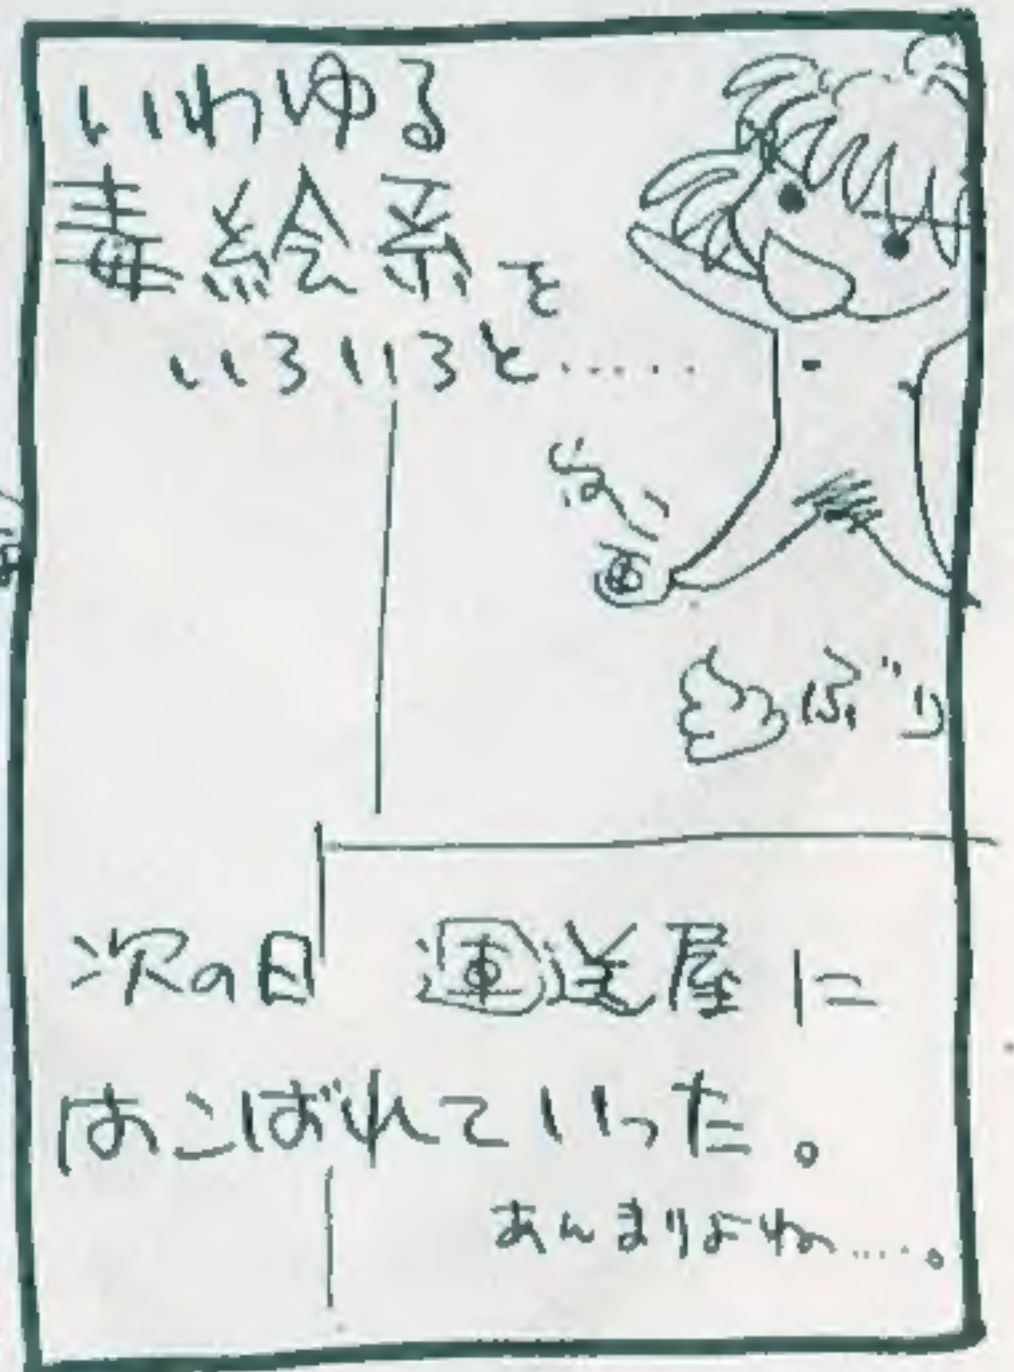 いわゆる
毒絵系を
いろいろと……
ぶり
次の日 運送屋に
はこばれていった。
あんまりよね……。